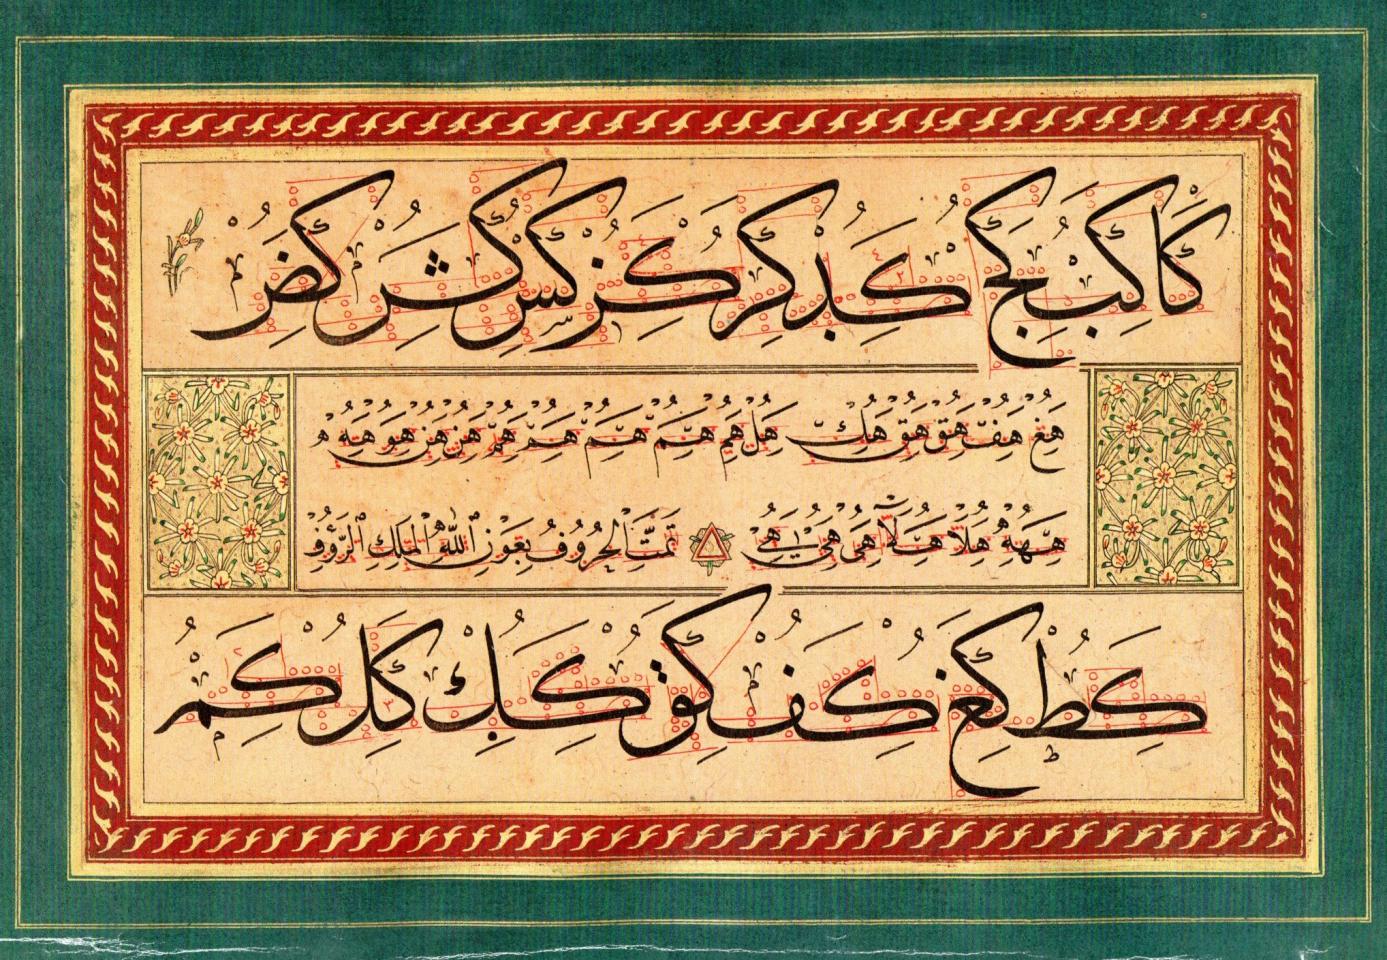 كا كب كج كد كر كز كس كش كض
هغ هف هق هق هك هل هم هم هم هم هم هن هن هو هه
هه هلا هلا هى هى هى
تمت الحروف بعون الله الملك الرؤف
كط كغ كف كق كك كل كم